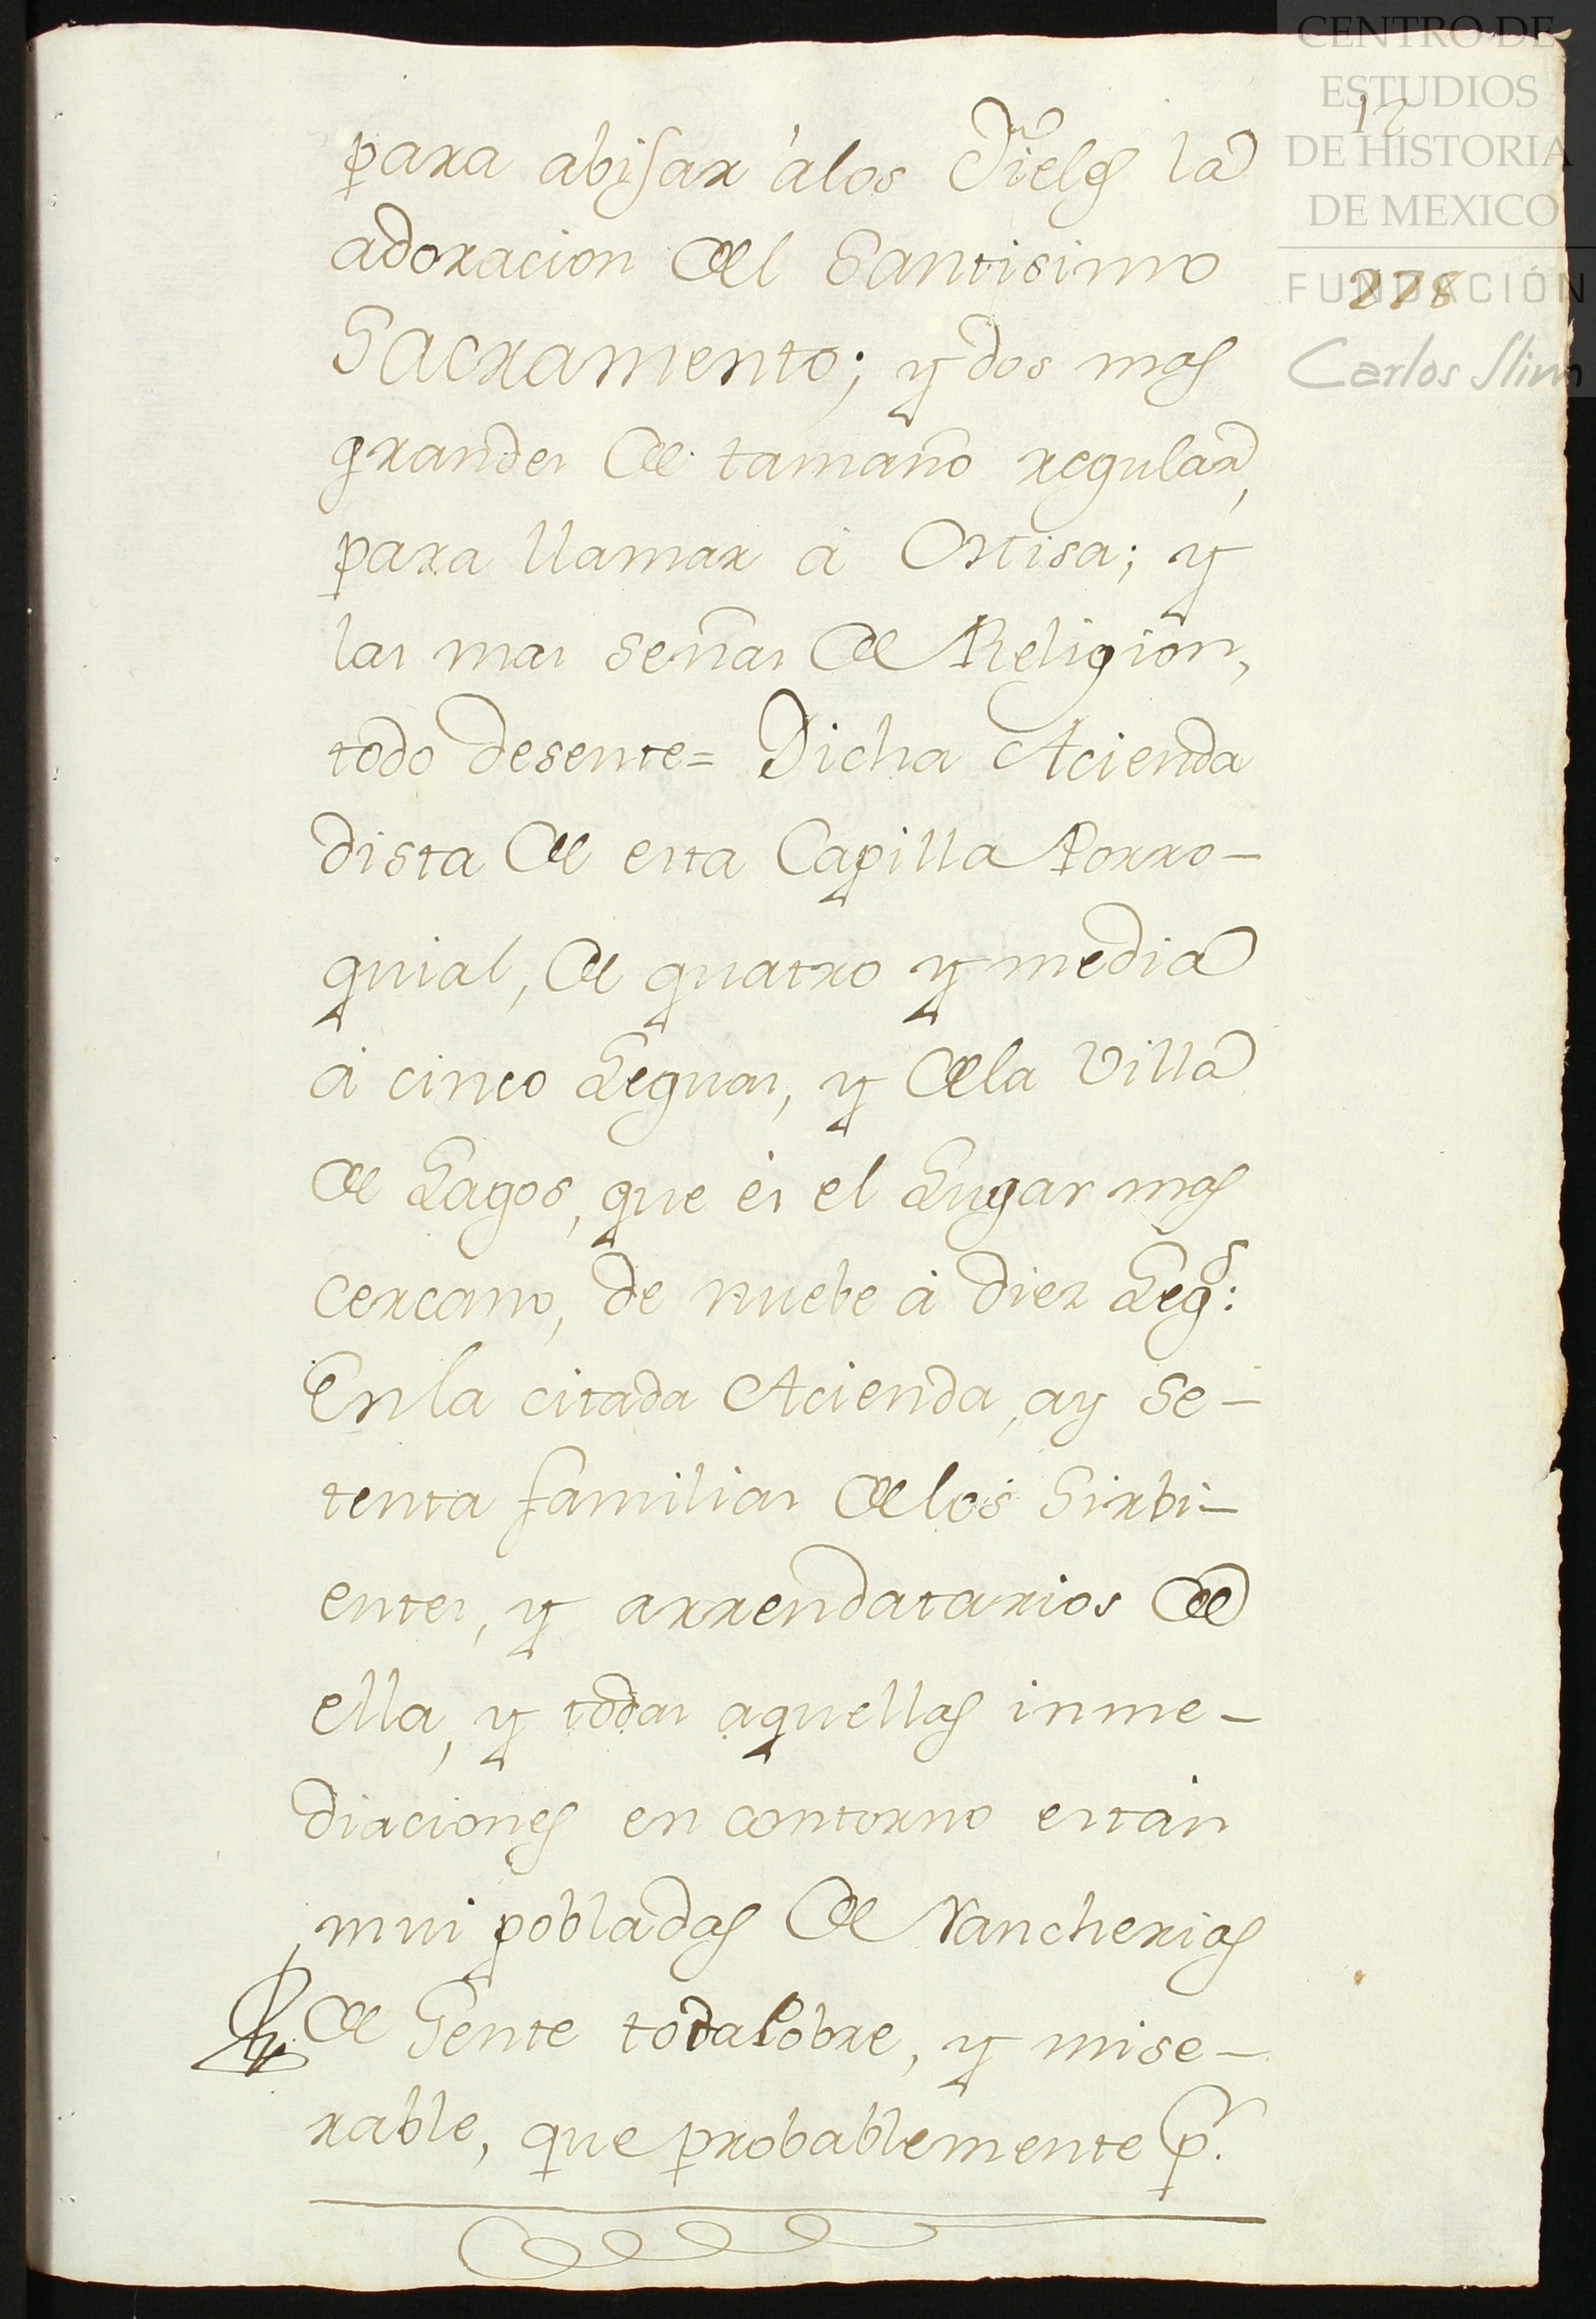 CENTRO DE
ESTUDIOS
DE HISTORIA
DE MEXICO
FUNDACIÓN
Carlos Slim
12
278
para abisar àlos Fieles la
adoracion del Santisimo
Sacramento; y dos mas
grandes de tamaño regular,
para llamar à Missa; y
las mas señas de Religion,
todo desente= Dicha Acienda
dista de esta Capilla Parro-
quial, de quatro y media
à cinco Leguas, y dela Villa
de Lagos, que és el Lugar mas
cercano, de nuebe à diez Leg.s:
Enla citada Acienda, ay se-
tenta familias delos Sirbi-
entes, y arrendatarios de
ella, y todas aquellas inme-
diaciones en contorno estàn
mui pobladas de rancherias
de Gente toda Pobre, y mise-
rable, que probablemente p.r